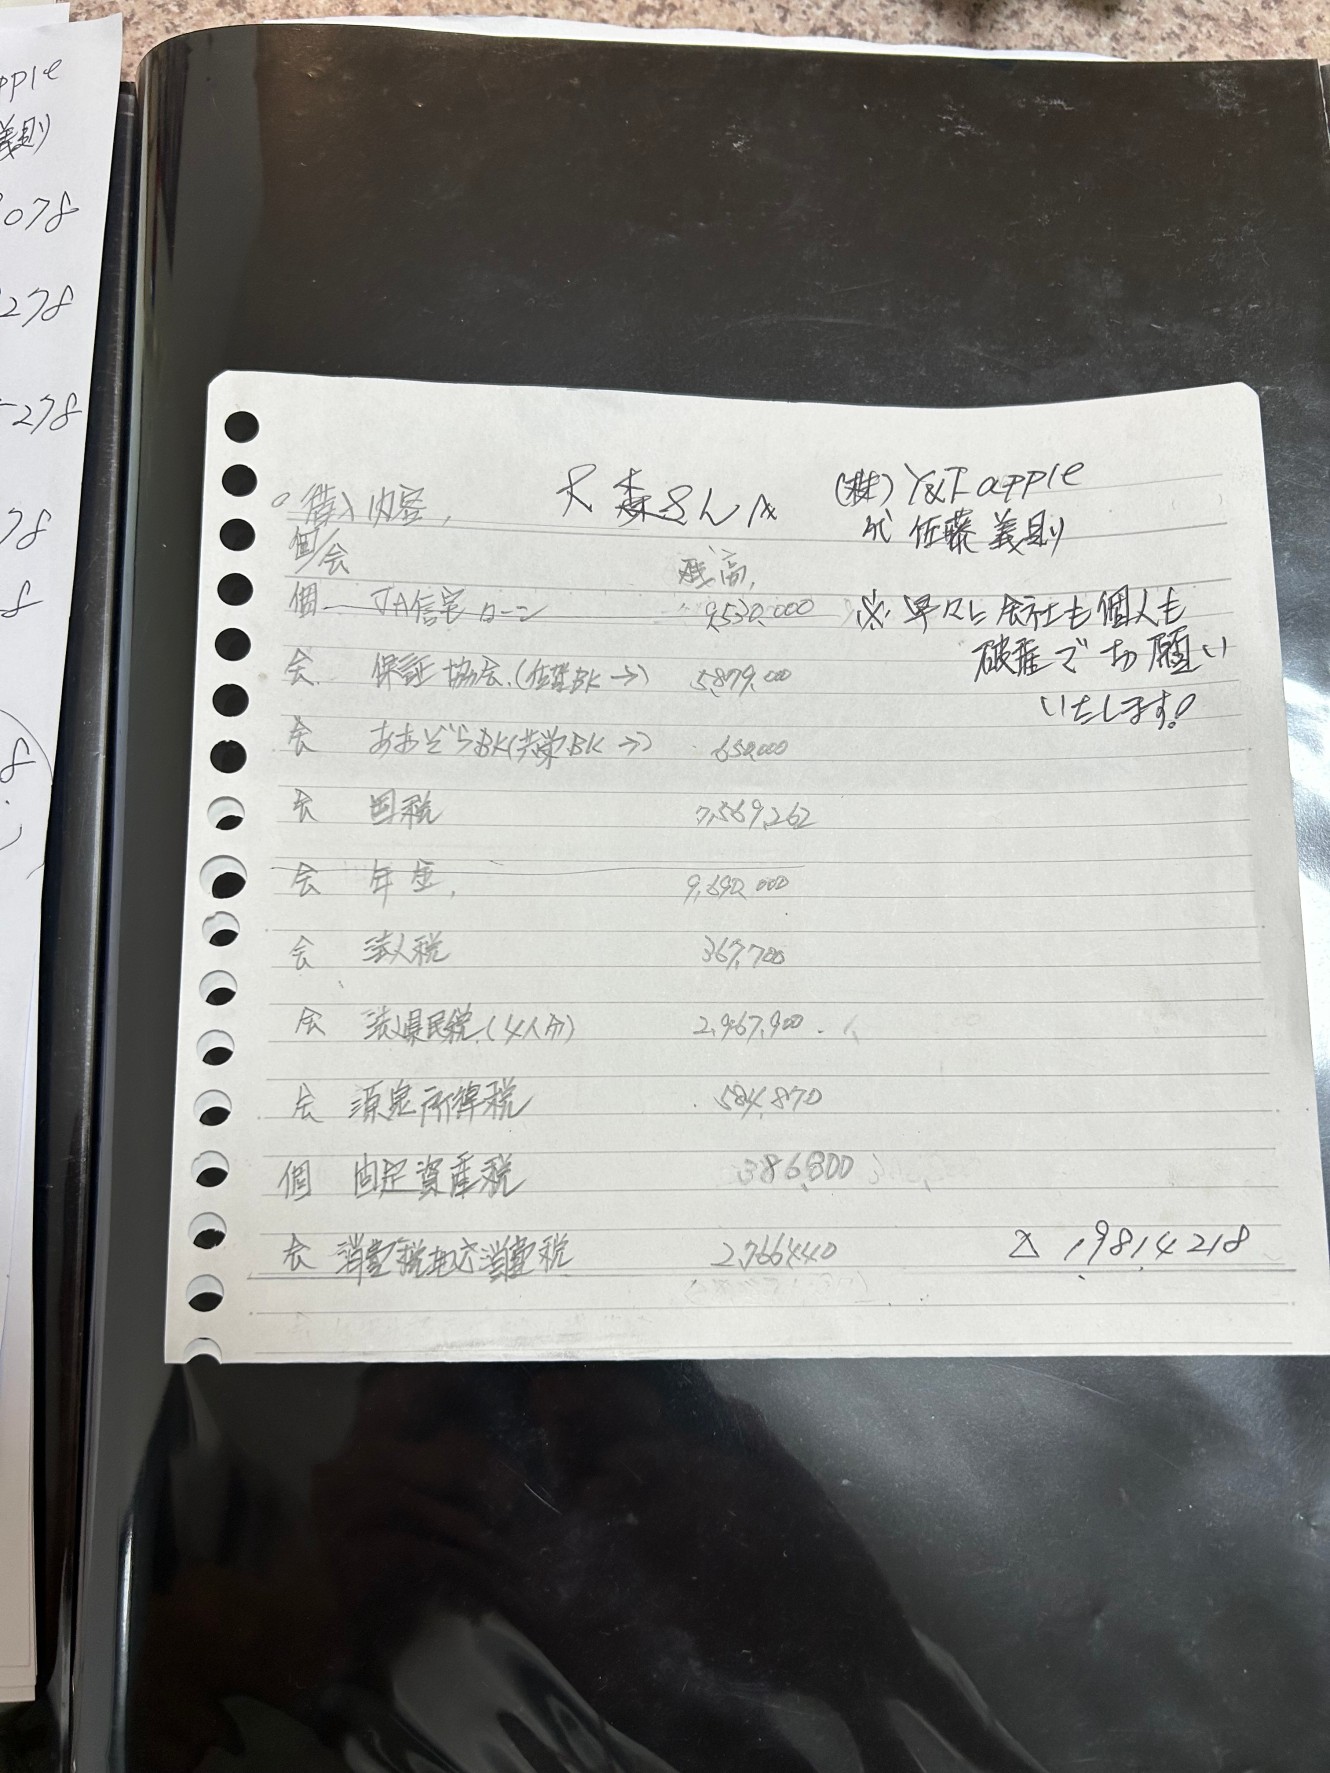 apple
義則
078
278
278
78
8
8
○借入内容、 大森さんへ (株)Y&T apple
個/会 代 佐藤 義則
残高、
個 JA住宅ローン 9,530,000 ※早々に会社も個人も
会 保証協会、(佐賀BK→) 5,879,000 破産でお願い
いたします!
会 あおぞらBK(共栄BK→) 650,000
会 国税 7,569,262
会 年金、 9,690,000
会 法人税 367,700
会 法人県民税、(4人分) 2,967,900
会 源泉所得税 584,870
個 固定資産税 386,800
会 消費税 消費税 2,766,440 △19814218